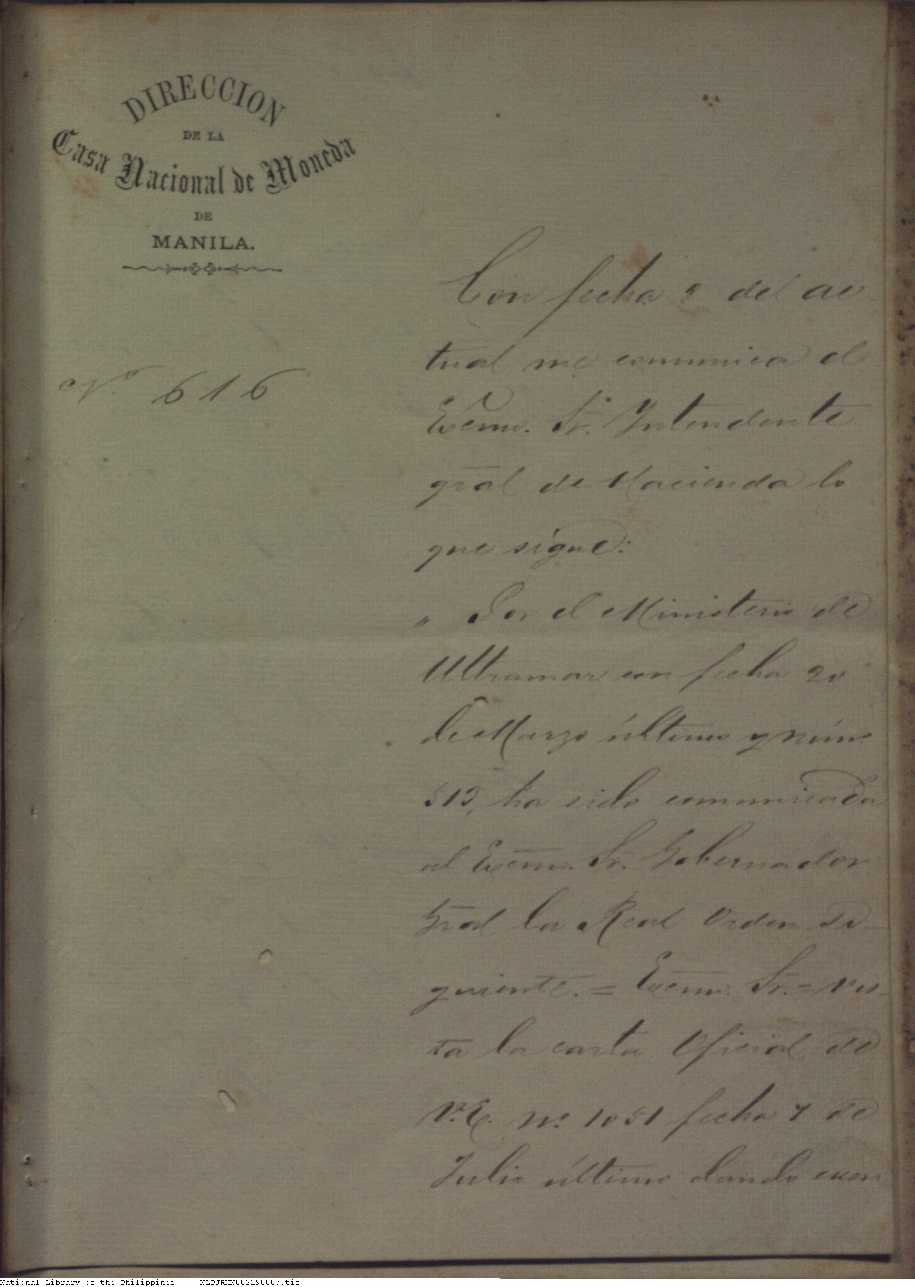 DIRECCION
DE LA
Casa Nacional de Moneda
DE
MANILA.
Nº 616
Con fecha 2 del ac-
tual me comunica el
Excmo. Sr. Intendente
gral de Hacienda lo
que sigue:
" Por el Ministerio de
Ultramar con fecha 20
de Marzo último y núm
515, ha sido comunicada
al Excmo. Sr. Gobernador
Gral la Real Orden si-
guiente. = Excmo. Sr. = Vis-
ta la carta Oficial de
V.E. nº 1051 fecha 7 de
Julio último dando cuen
National Library of the Philippines